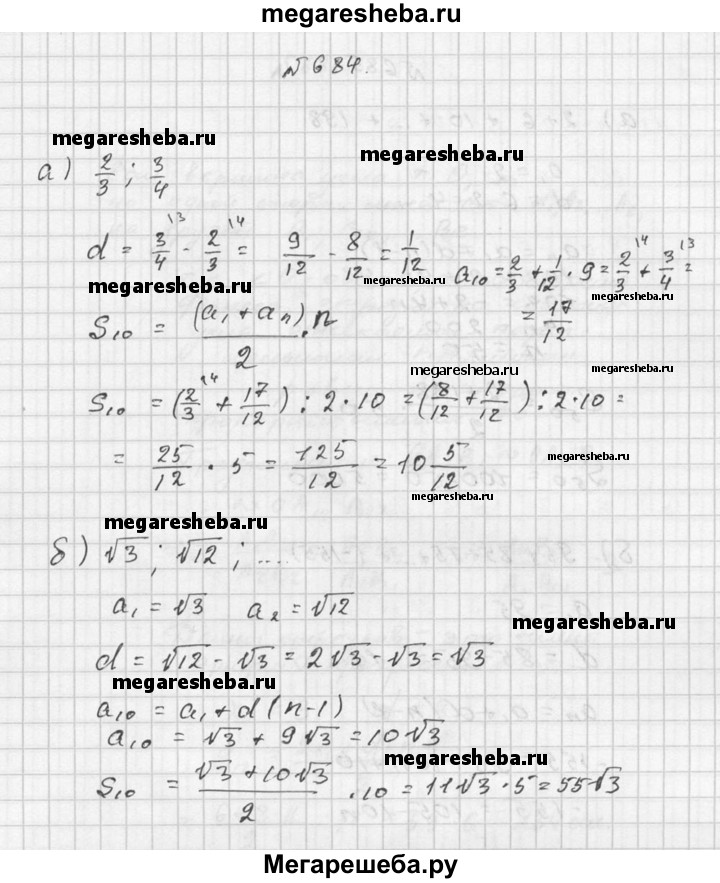 megaresheba.ru
№684.
megaresheba.ru
megaresheba.ru
а) 2/3 ; 3/4
d = 3/4 \3 - 2/3 \4 = 9/12 - 8/12 = 1/12
a₁₀ = 2/3 + 1/12 · 9 = 2/3 \4 + 3/4 \3 =
megaresheba.ru
megaresheba.ru
megaresheba.ru
= 17/12
S₁₀ = (a₁ + aₙ)/2 · n
megaresheba.ru
megaresheba.ru
S₁₀ = (2/3 \4 + 17/12) : 2 · 10 = (8/12 + 17/12) : 2 · 10 =
= 25/12 · 5 = 125/12 = 10 5/12
megaresheba.ru
megaresheba.ru
megaresheba.ru
б) √3 ; √12 ; ....
a₁ = √3 a₂ = √12
megaresheba.ru
d = √12 - √3 = 2√3 - √3 = √3
megaresheba.ru
a₁₀ = a₁ + d(n-1)
a₁₀ = √3 + 9√3 = 10√3
megaresheba.ru
S₁₀ = (√3 + 10√3)/2 · 10 = 11√3 · 5 = 55√3
Мегарешеба.ру